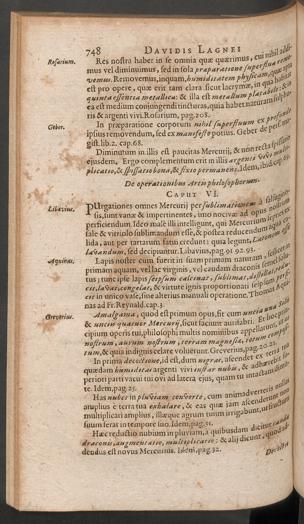 748 DAVIDIS LAGNEI
Rosarium. Res nostra haber in se omnia quæ quærimus, cui nihil addi-
mus vel diminuimus, sed in sola præparatione superflua remo-
vemus. Removemus, inquam, humiditatem physicam, quæ
est pro opere, quæ erit tam clara sicut lacrymæ, in qua habitat
quinta essentia metallica: & illa est metallum placabile: & in
ea est medium conjungendi tincturas, quia habet naturam sulphu-
ris & argenti vivi. Rosarium, pag. 208.
Geber. In præparatione corporum nihil superfluum ex profundo
ipsius removendum, sed ex manifesto potius. Geber de perf.
gist. lib. 2. cap. 68.
Diminutum in illis est paucitas Mercurii, & non recta spissatio
ejusdem, Ergo complementum erit in illis argenti vivi multi-
plicatio, & spissatio bona, & fixio permanens. Idem, ibid. cap. 69.
De operationibus Artis philosophorum.
CAPUT VI.
Libavius. PUrgationes omnes Mercurii per sublimationem à
sunt vanæ & impertinentes, imo nocivæ ad opus nostrum
perficiendum. Ideo malè illi intelligunt, qui Mercurium
sale & vitriolo sublimandum esse, & postea reducendum aqua ca-
lida, aut per tartarum
lavandum, sed decipiuntur. Libavius, pag. 90. 92. 93.
Aquinas. Lapis noster cum fuerit in suam primam naturam,
primam aquam, vel lac virginis, vel caudam draconis
tus; tunc ipse lapis seipsum calcinat, sublimat, distillat, redu-
cit, lavat, congelat, & virtute ignis proportionati seipsum perfi-
cit in unico vase, sine alterius manuali operatione. Thomas Aqui-
nas ad Fr. Reynald. cap. 3.
Greverius. Amalgama, quod est primum opus, fit cum uncia una Solis
& unciis quatuor Mercurii, sicut faciunt auri fabri. Et hoc prin-
cipium operis tui, philosophi multis nominibus appellarunt, aurum
nostrum, aurum nostrum, terram magnesia, totum compositum,
tum, & quia indignis celare voluerunt. Greverius, pag. 20. 21.
In prima decoctione, id est, dum nigrat, ascendet ex terra
quædam humiditas argenti vivi instar nubis, & adhærebit su-
periori parti vacui tui ovi ad latera ejus, quam tu intactam dimit-
te. Idem, pag. 25.
Has nubes in pluviam converte, cum animadverteris nullas
amplius è terra tua exhalare, & eas quæ jam ascenderunt non
multiplicari amplius, illæque agrum tuum irrigabunt, ut fructum
suum ferat in tempore suo. Idem, pag. 31.
Hæc reductio nubium in pluviam, a quibusdam dicitur
draconis, augmentatio, multiplicatio: & alij dicunt, quod ad-
dendus est novus Mercurius. Idem, pag. 32.